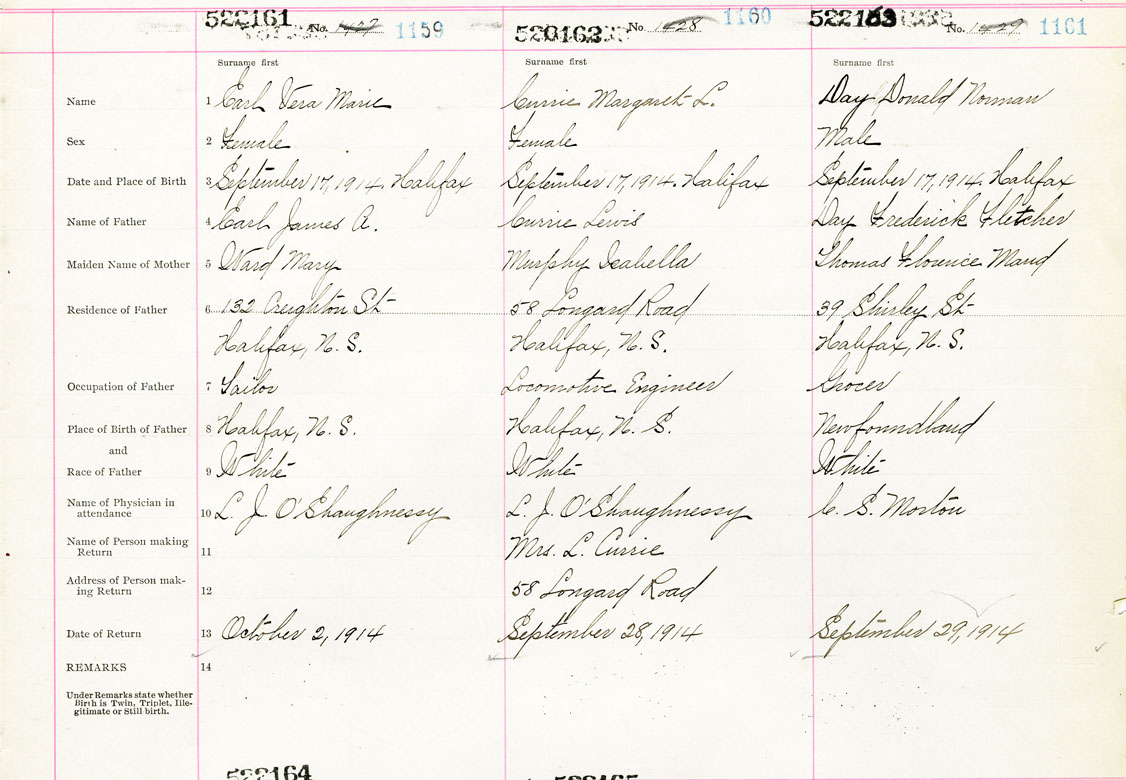 522161 No. 1427 1159
522162 No. 1428 1160
522163 No. 1429 1161
Surname first Surname first Surname first
Name 1 Earl Vera Marie Currie Margaret L. Day Donald Norman
Sex 2 Female Female Male
Date and Place of Birth 3 September 17, 1914. Halifax September 17, 1914. Halifax September 17, 1914. Halifax
Name of Father 4 Earl James A. Currie Lewis Day Frederick Fletcher
Maiden Name of Mother 5 Ward Mary Murphy Isabella Thomas Florence Maud
Residence of Father 6 132 Creighton St 58 Longard Road 39 Shirley St
Halifax, N. S. Halifax, N. S. Halifax, N. S.
Occupation of Father 7 Sailor Locomotive Engineer Grocer
Place of Birth of Father 8 Halifax, N. S. Halifax, N. S. Newfoundland
and
Race of Father 9 White White White
Name of Physician in
attendance 10 L. J. O'Shaughnessy L. J. O'Shaughnessy C. S. Morton
Name of Person making
Return 11 Mrs. L. Currie
Address of Person mak-
ing Return 12 58 Longard Road
Date of Return 13 October 2, 1914 September 28, 1914 September 29, 1914
REMARKS 14
Under Remarks state whether
Birth is Twin, Triplet, Ille-
gitimate or Still birth.
522164 522165